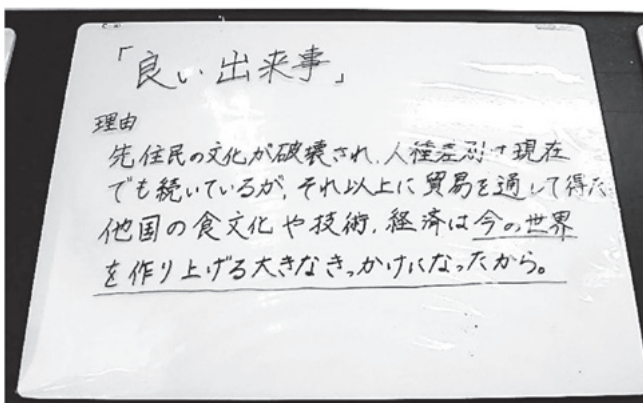 「良い出来事」
理由
先住民の文化が破壊され、人種差別は現在
でも続いているが、それ以上に貿易を通して得た
他国の食文化や技術、経済は今の世界
を作り上げる大きなきっかけになったから。